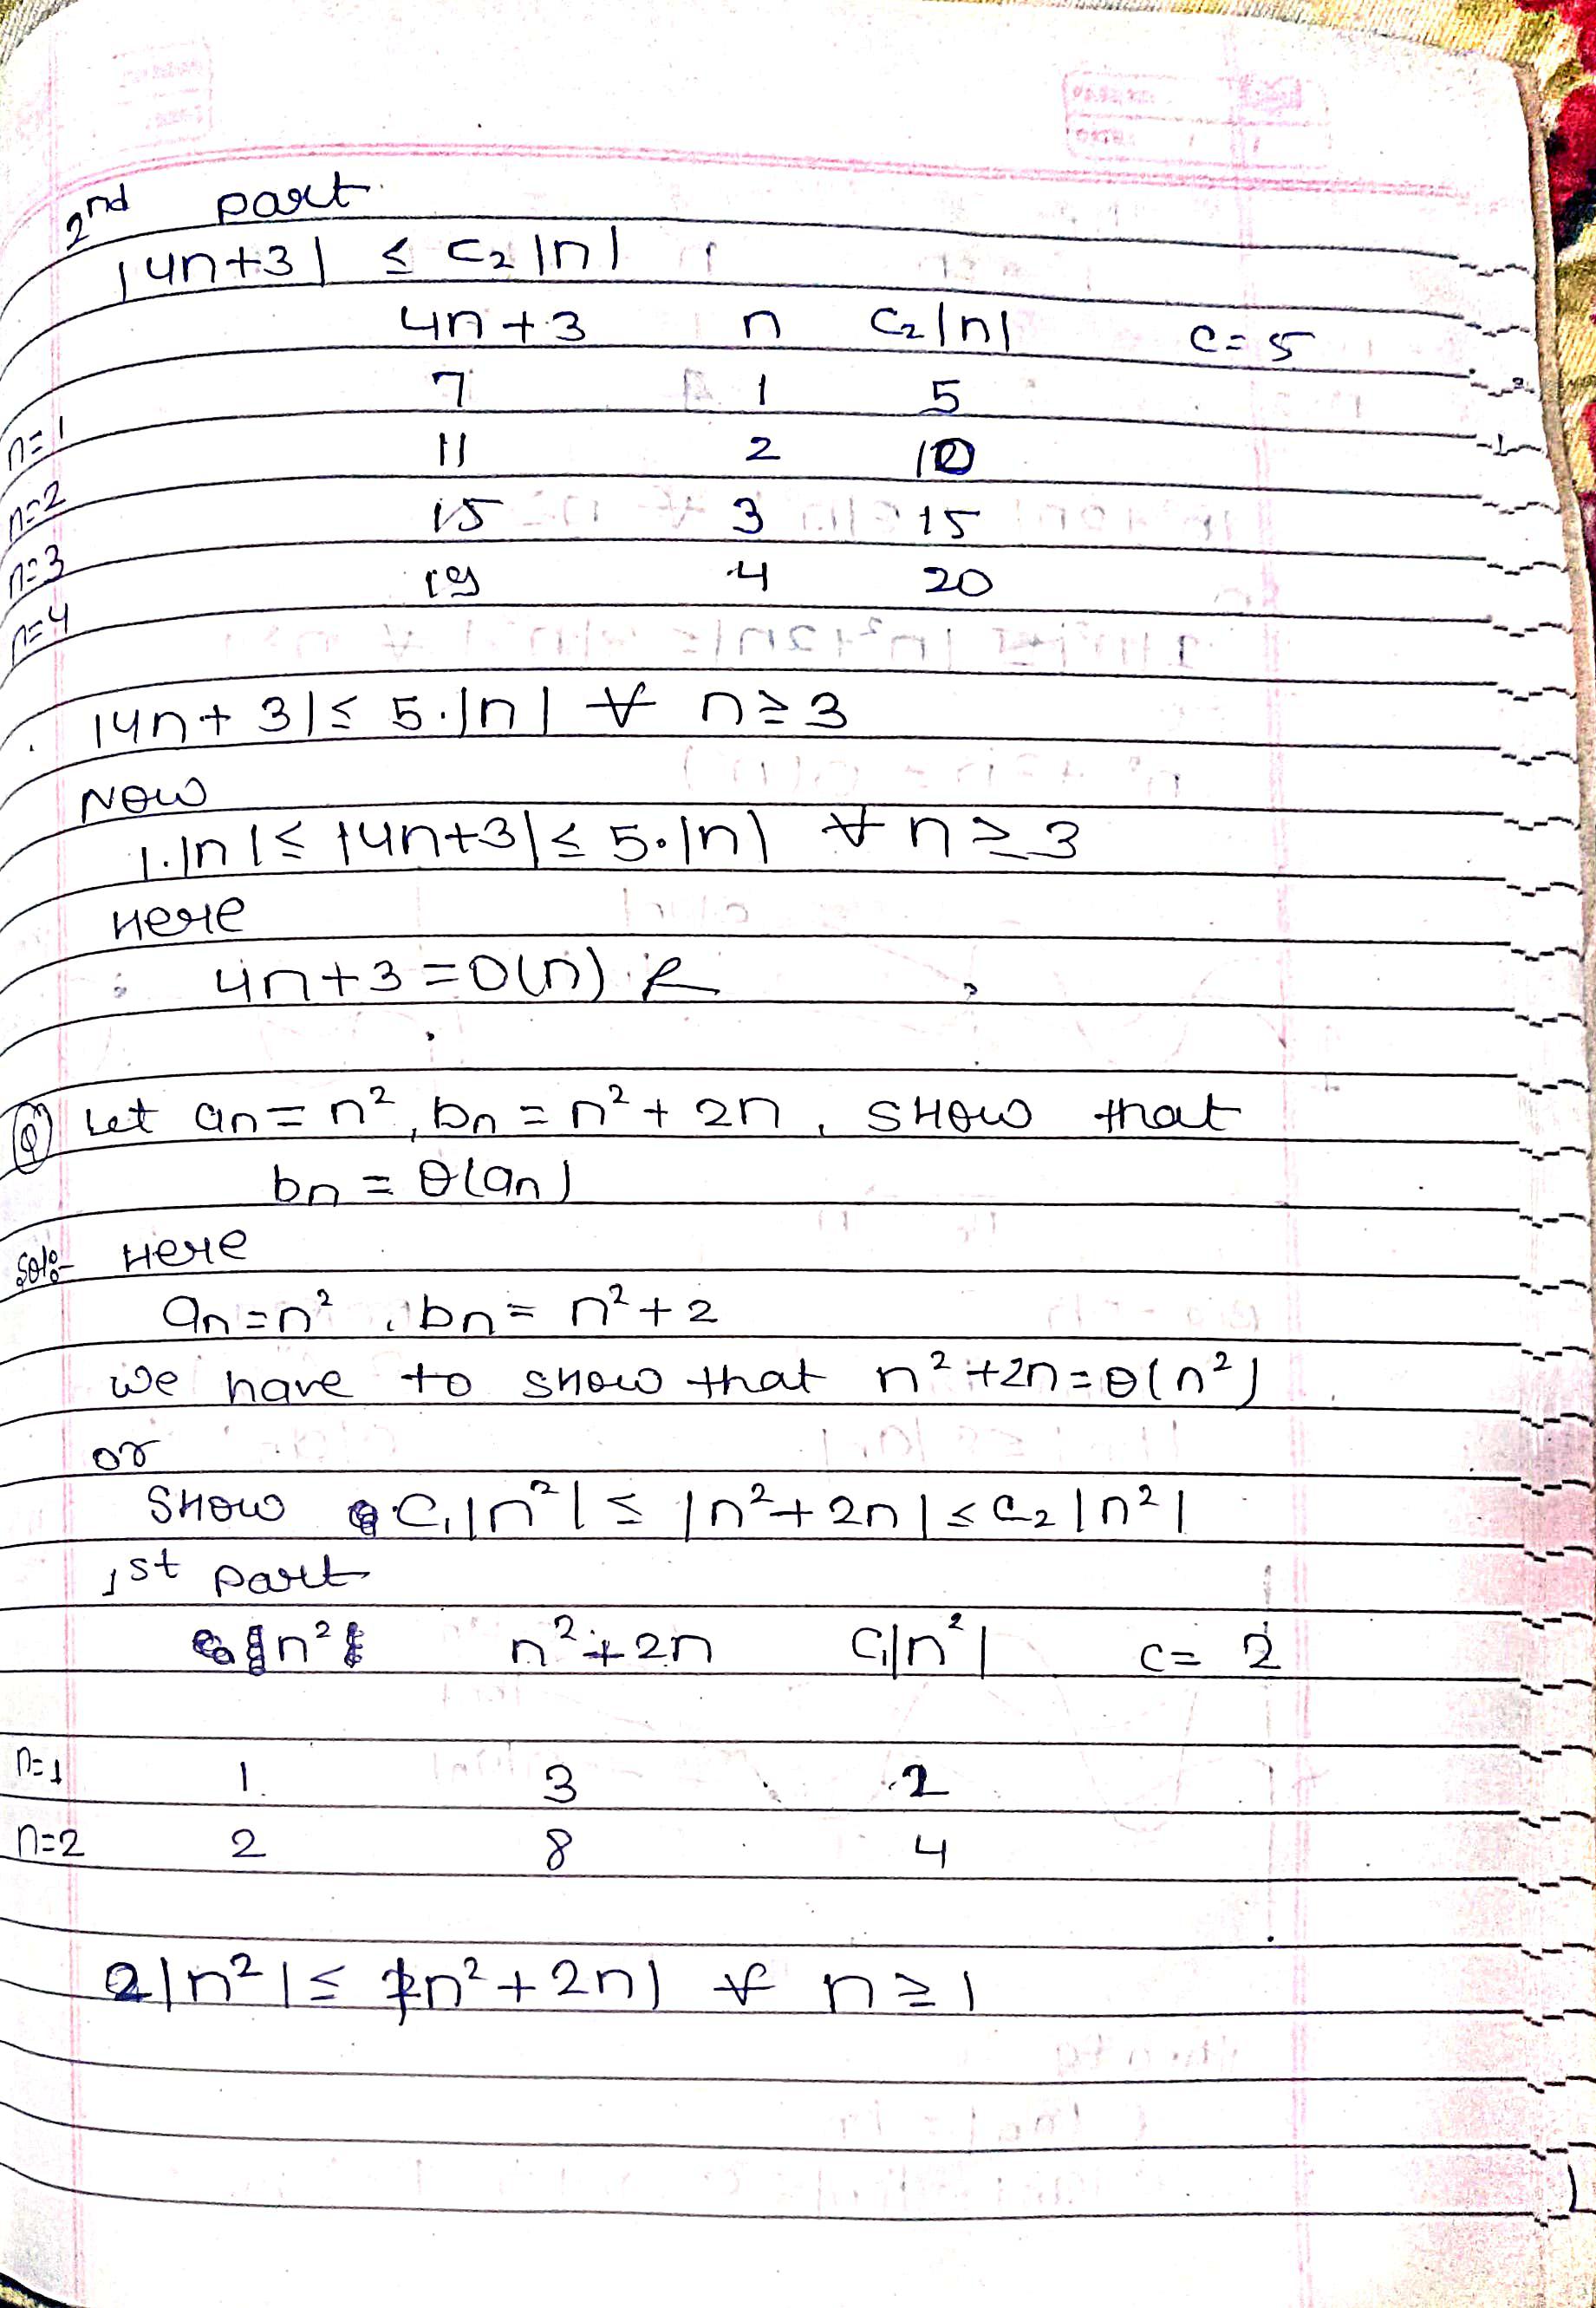 2nd part
|4n+3| ≤ C₂|n|
4n+3 n C₂|n| C=5
n=1 7 1 5
n=2 11 2 10
n=3 15 3 15
n=4 19 4 20
|4n+3|≤ 5.|n| ∀ n≥3
Now
1.|n|≤ |4n+3|≤ 5.|n| ∀ n≥3
Here
4n+3=O(n)
Q Let an=n², bn=n²+2n, Show that
bn = θ(an)
Sol:- Here
an=n², bn= n²+2
we have to show that n²+2n=θ(n²)
or
Show C₁|n²| ≤ |n²+2n|≤C₂|n²|
1st part
n² n²+2n C₁|n²| C= 2
n=1 1 3 2
n=2 2 8 4
2|n²|≤ |n²+2n| ∀ n≥1